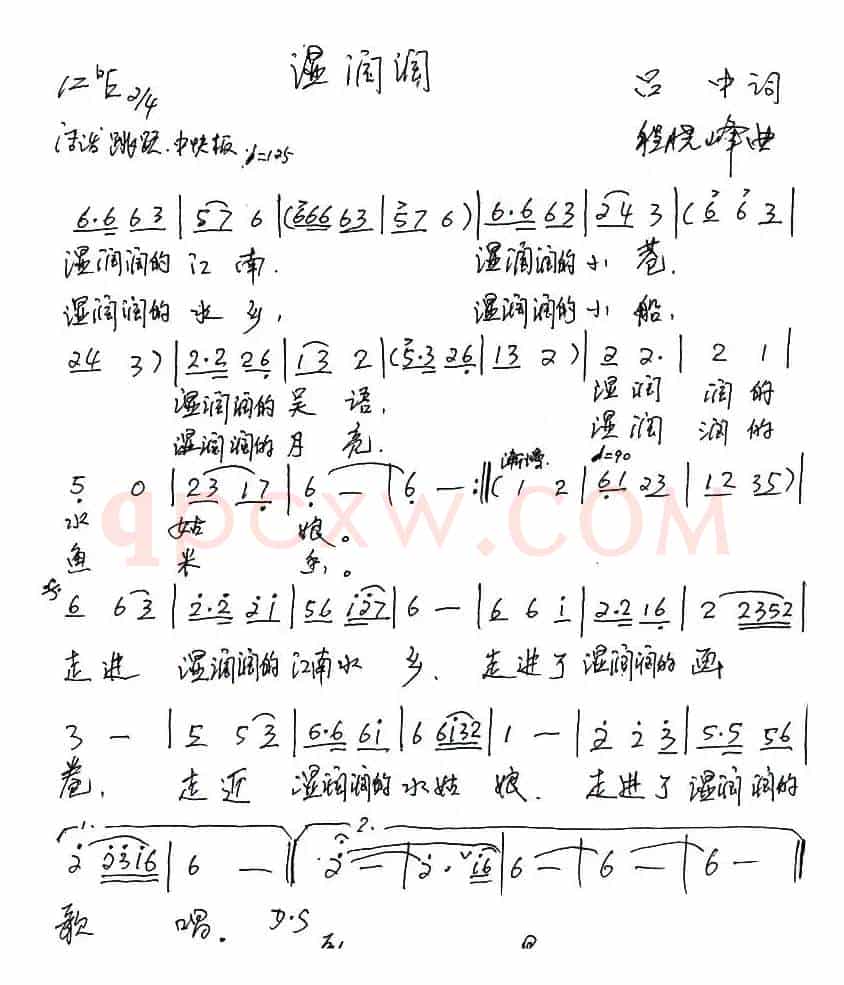 湿润润
1=♭E 2/4
吕 中词
活泼 跳跃.中快板 ♩=125
程晓峰曲
6·6 6 3 | 5 7 6 | (6 6 6 6 3 | 5 7 6) | 6·6 6 3 | 2 4 3 | (6 6 3 |
湿润润的 江 南. 湿润润的 小 巷.
湿润润的 水 乡, 湿润润的 小 船,
2 4 3) | 2·2 2 6 | 1 3 2 | (5·3 2 6 | 1 3 2) | 2 2· | 2 1 |
湿润润的 吴 语, 湿 润 润 的
湿润润的 月 亮. 湿 润 润 的
渐慢 ♩=90
5 0 | 2 3 1 7 | 6 — | 6 — :‖ (1 2 | 6 1 2 3 | 1 2 3 5) |
水 姑 娘。
鱼 米 乡。
qpcxw.com
6 6 3 | 2·2 2 1 | 5 6 1 2 7 | 6 — | 6 6 1 | 2·2 1 6 | 2 2 3 5 2 |
走 进 湿润润的 江南水 乡. 走 进了 湿润润的 画
3 — | 5 5 3 | 6·6 6 1 | 6 6 1 3 2 | 1 — | 2 2 3 | 5·5 5 6 |
卷, 走 近 湿润润的 水姑 娘. 走 进了 湿润润的
1. 2.
2 2 3 1 6 | 6 — ‖ 2 — | 2· 1 6 | 6 — | 6 — | 6 — ‖
歌 唱. D.S